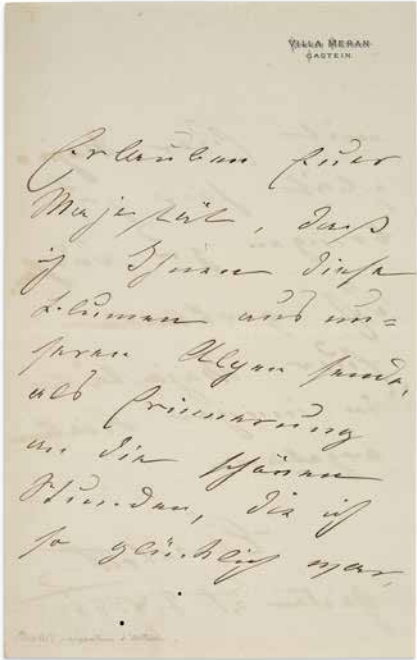 VILLA MERAN
GASTEIN
Erlauben Euer
Majestät, daß
ich Ihnen diese
Blumen aus un=
seren Alpen sende,
als Erinnerung
an die schönen
Stunden, die ich
so glücklich war,